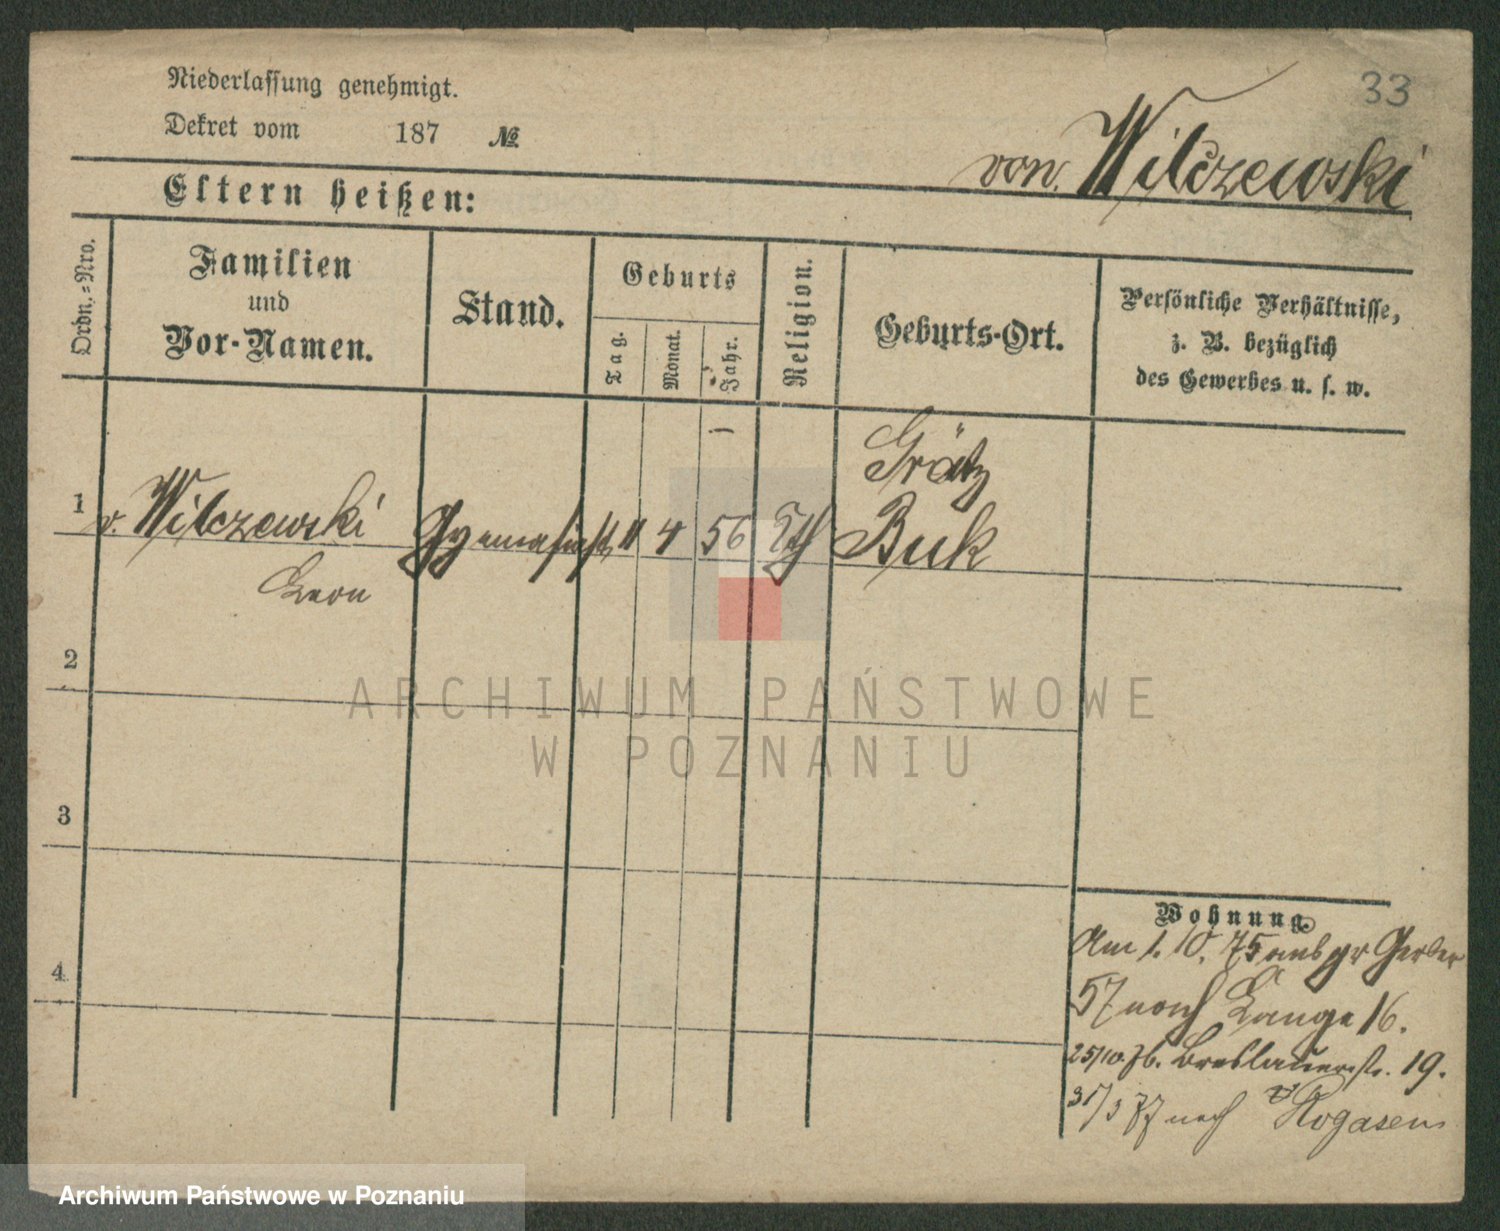 33
Niederlassung genehmigt.
Dekret vom 187 №
von Wilczewski
Eltern heißen:
Ordn.-Nro.
Familien
und
Vor-Namen.
Stand.
Geburts
Tag.
Monat.
Jahr.
Religion.
Geburts-Ort.
Persönliche Verhältnisse,
z. B. bezüglich
des Gewerbes u. s. w.
Grätz
1 v. Wilczewski Gymnasiast 11 4 56 Kth Buk
Leon
2
3
4
Wohnung.
Am 1. 10. 75 aus gr Gerber
57 nach Lange 16.
25/10. 76. Breslauerstr. 19.
31/3 77 nach Rogasen
ARCHIWUM PAŃSTWOWE
W POZNANIU
Archiwum Państwowe w Poznaniu